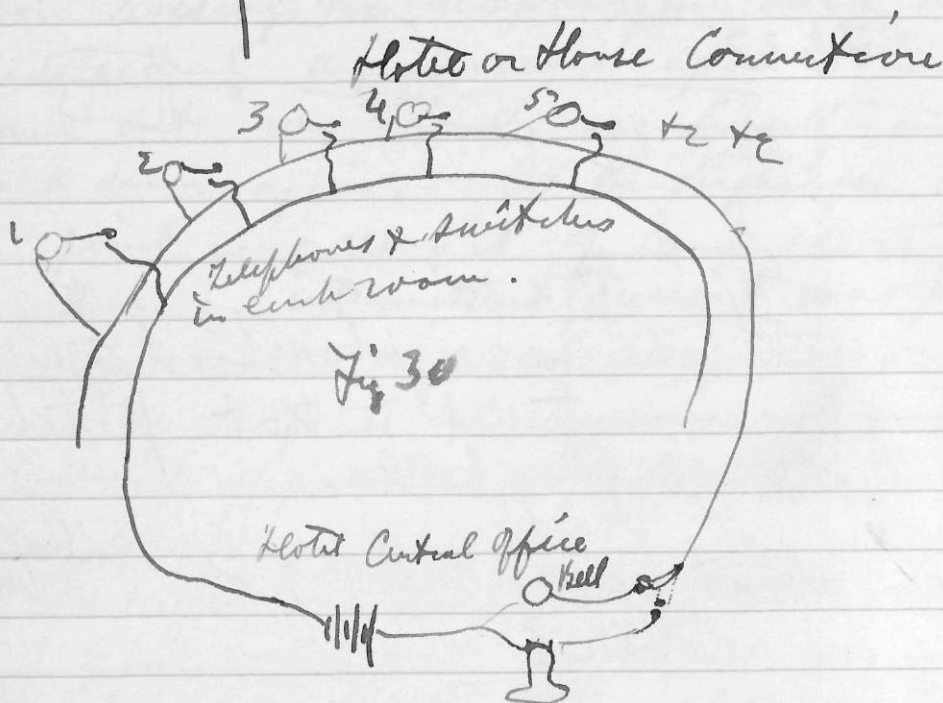 Hotel or House Connection
1 2 3 4 5 &c &c
Telephones & switches
in each room.
Fig 30
Hotel Central office
Bell